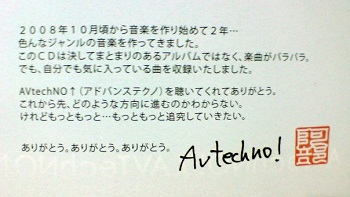 ２００８年１０月頃から音楽を作り始めて２年…
色んなジャンルの音楽を作ってきました。
このＣＤは決してまとまりのあるアルバムではなく、楽曲がバラバラ。
でも、自分でも気に入っている曲を収録いたしました。
AVtechNO↑（アドバンステクノ）を聴いてくれてありがとう。
これから先、どのような方向に進むのかわからない。
けれどもっともっと…もっともっと追究していきたい。
ありがとう。ありがとう。ありがとう。
Avtechno!